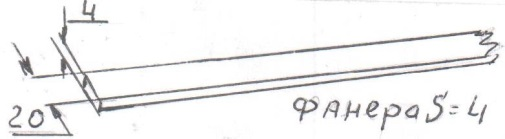 4
20
Фанера S=4